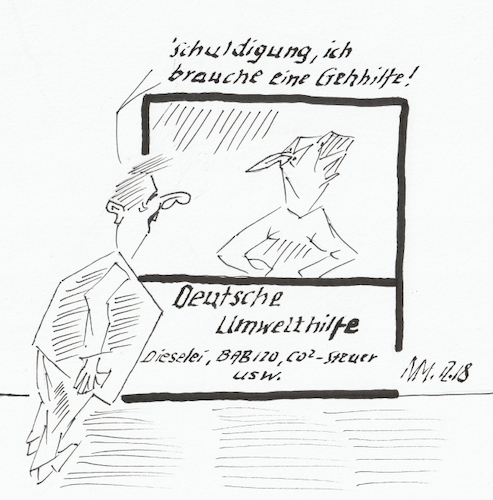 'schuldigung, ich
brauche eine Gehhilfe!
Deutsche
Umwelthilfe
Dieselei, BAB 120, CO²-Steuer
usw.
MM. 12.18